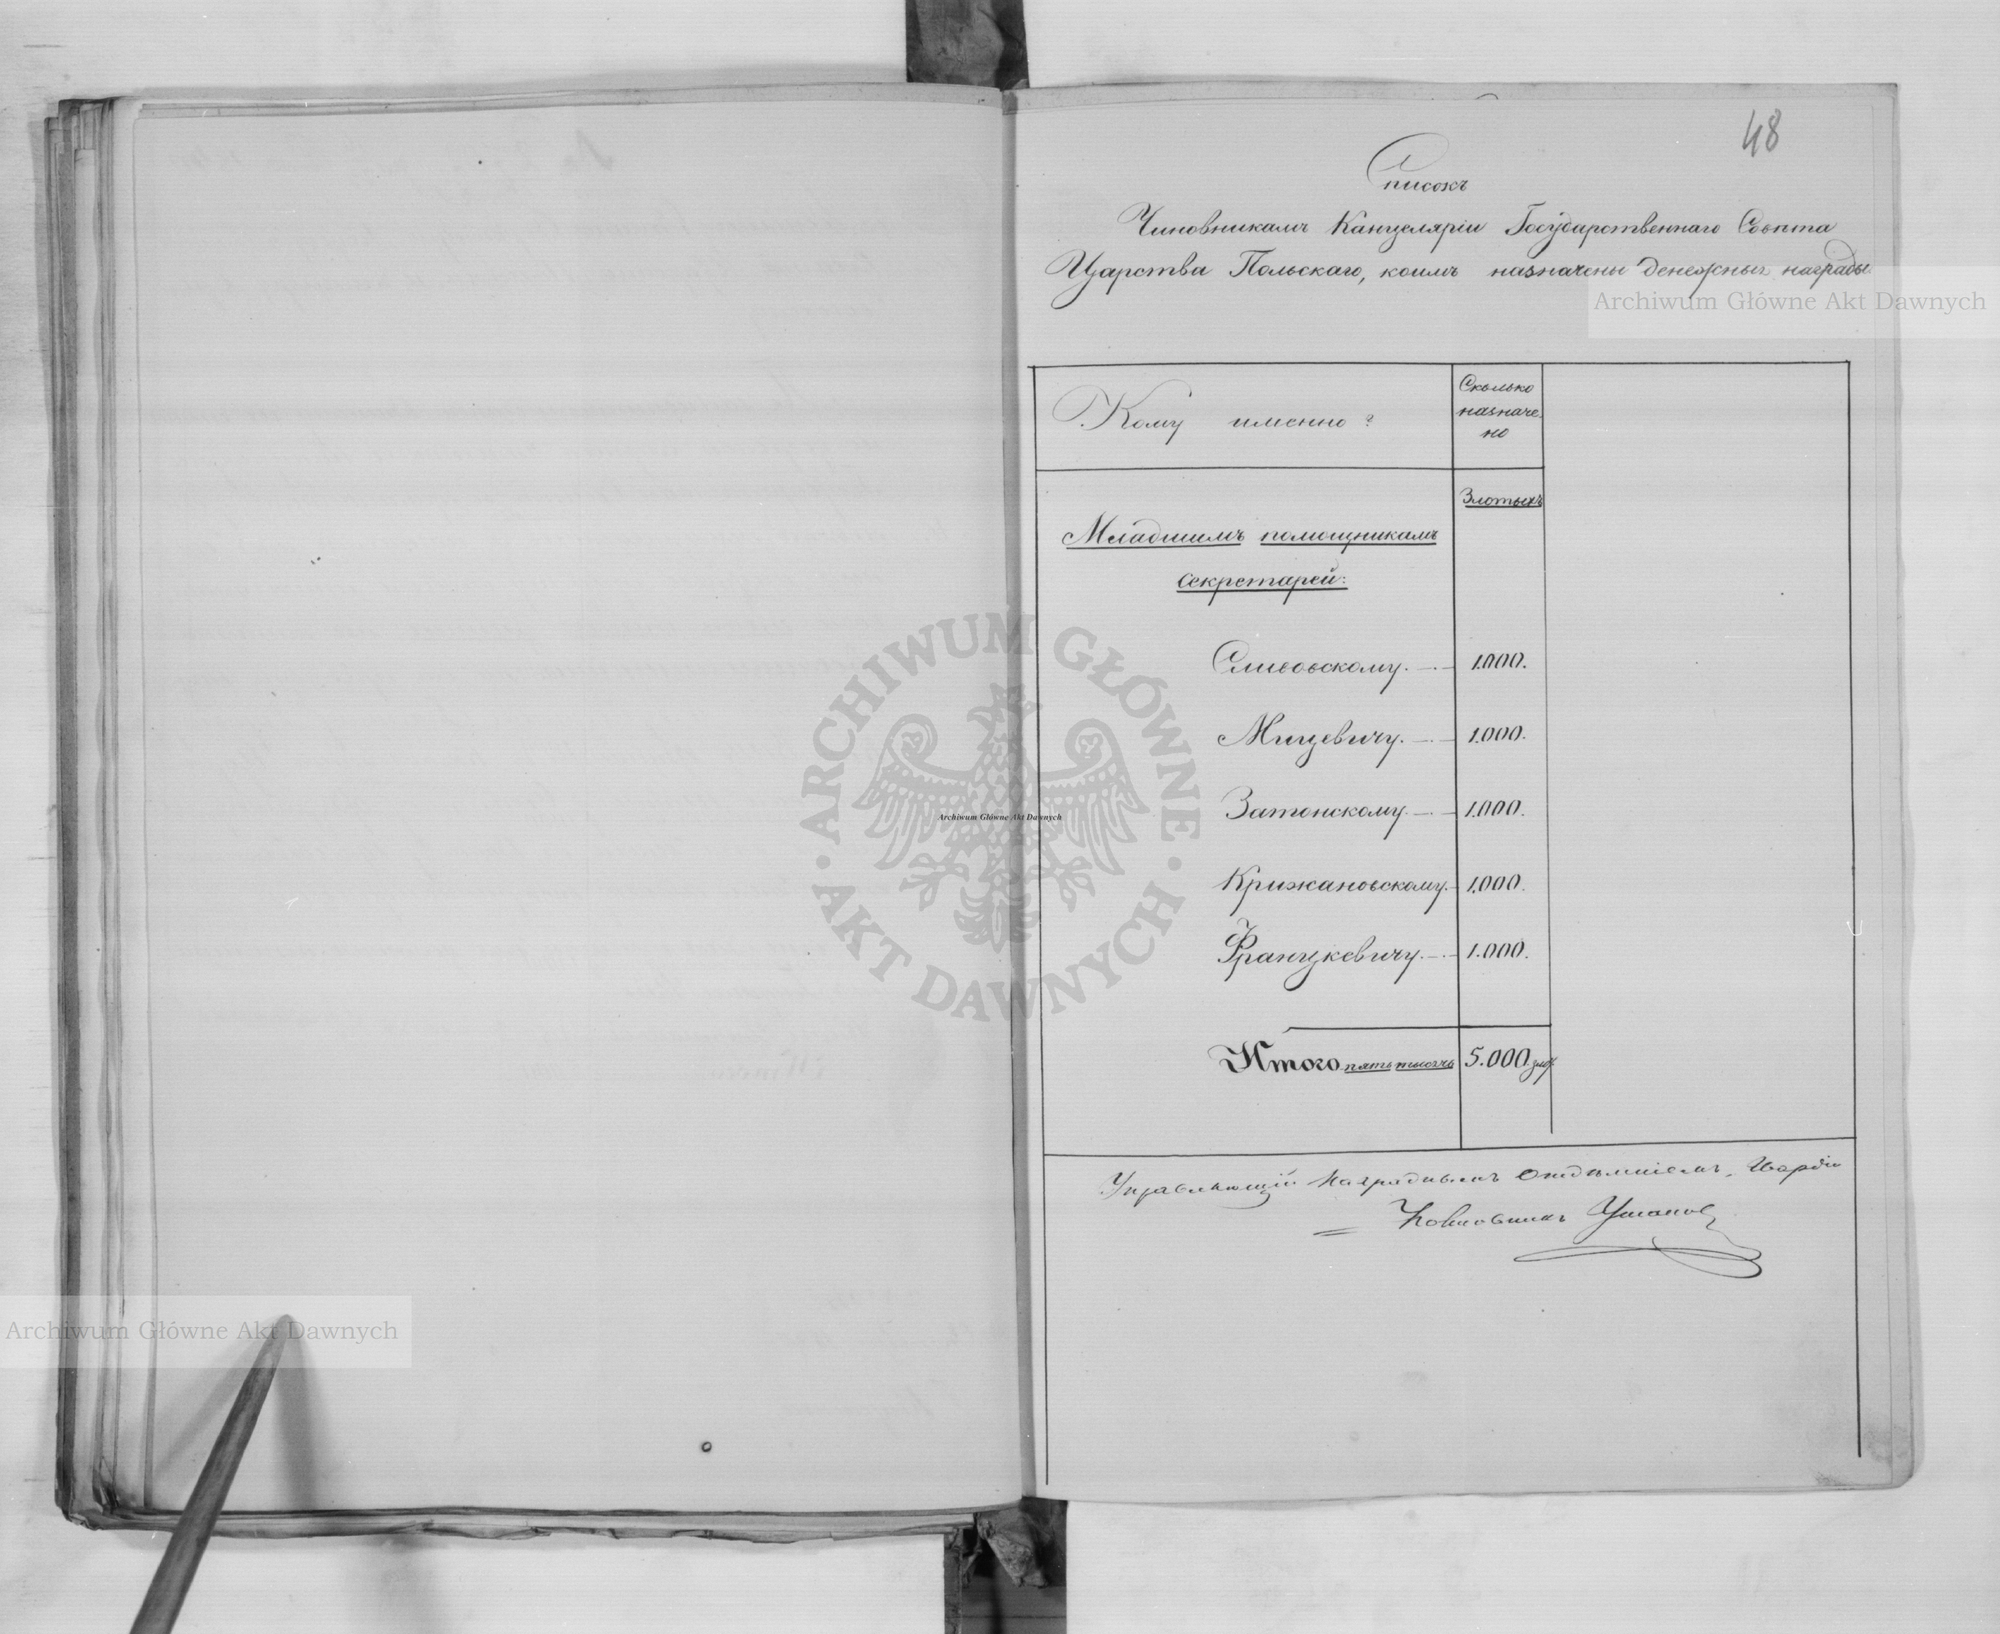 48
Списокъ
Чиновникамъ Канцеляріи Государственнаго Совѣта
Царства Польскаго, коимъ назначены денежныя награды.
Archiwum Główne Akt Dawnych
Кому именно?
Сколько
назначе-
но
Злотыхъ
Младшимъ помощникамъ
секретарей:
Сливовскому. 1.000.
Мицевичу. 1.000.
Затонскому 1.000.
Крижановскому. 1.000.
Францкевичу 1.000.
Итого пять тысячъ 5.000. злот.
Управляющій Наградным Отдѣленіемъ, Гвардіи
Полковникъ Ушаковъ
ARCHIWUM GŁÓWNE AKT DAWNYCH
Archiwum Główne Akt Dawnych
Archiwum Główne Akt Dawnych